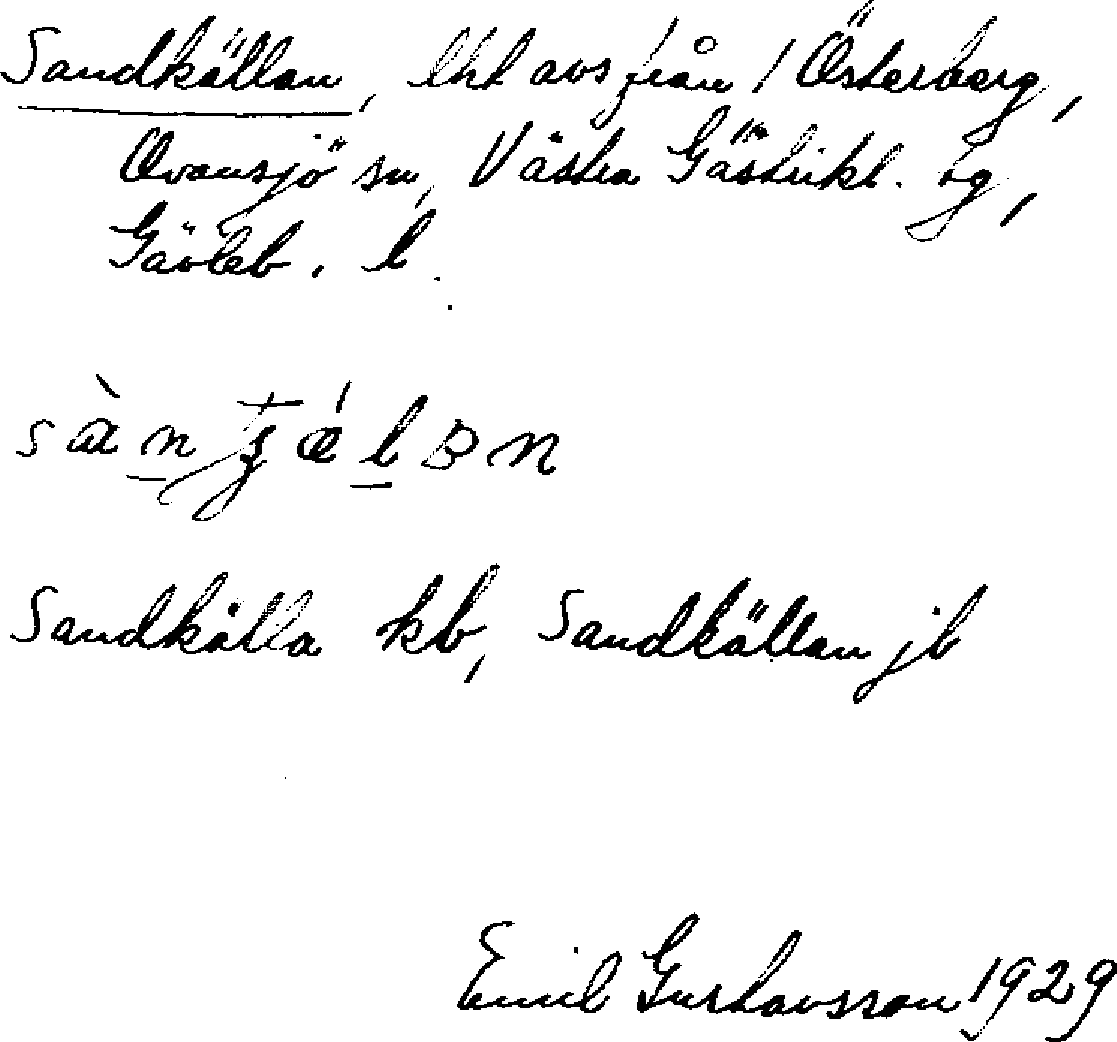 Sandkällan, lht avs från 1 Österberg,
Ovansjö sn, Västra Gästrikl. tg,
Gävleb. l.
Sandkälla kb, Sandkällan jb
Emil Gustavsson 1929